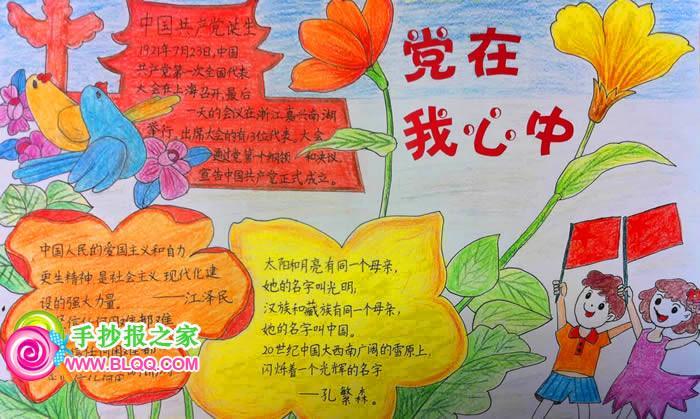 中国共产党诞生
1921年7月23日,中国
共产党第一次全国代表
大会在上海召开,最后
一天的会议在浙江嘉兴南湖
举行,出席大会的有13位代表。大会
通过党第一个纲领和决议,
宣告中国共产党正式成立。
党在
我心中
中国人民的爱国主义和自力
更生精神是社会主义现代化建
设的强大力量。
——江泽民
太阳和月亮有同一个母亲,
她的名字叫光明,
汉族和藏族有同一个母亲,
她的名字叫中国。
20世纪中国大西南广阔的雪原上,
闪烁着一个光辉的名字
——孔繁森。
手抄报之家
WWW.BLQQ.COM